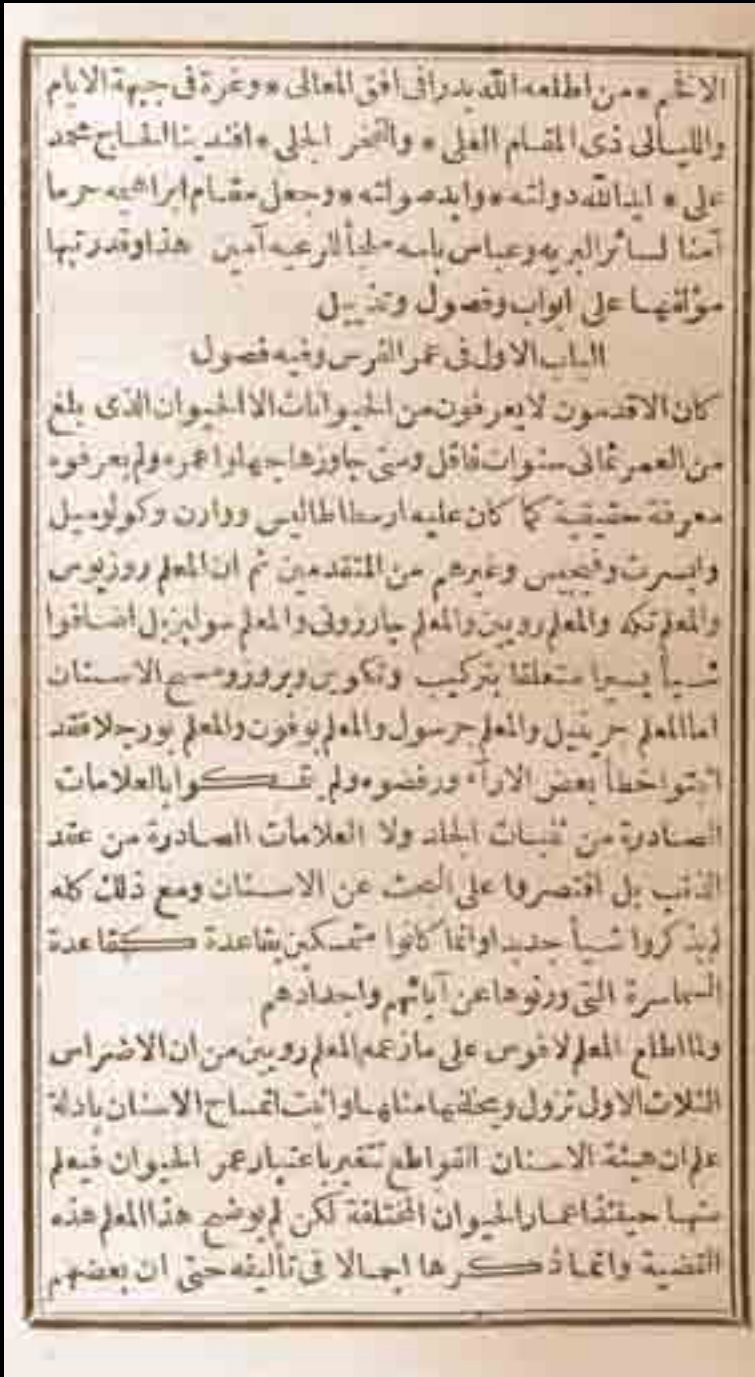 الافخم * من اطلعه الله بدرا فى افق المعالى * وغرة فى جبهة الايام
والليالى ذى المقام العلى * والفخر الجلى * افندينا الحاج محمد
على * ايد الله دولته * وابد صولته * وجعل مقام ابراهيمه حرما
آمنا لسائر البريه وعباس باسه ملجأ للرعيه آمين هذا وقد رتبها
مؤلفها على ابواب وفصول وتذييل
الباب الاول فى عمر الفرس وفيه فصول
كان الاقدمون لا يعرفون من الحيوانات الا الحيوان الذى بلغ
من العمر ثمانى سنوات فاقل ومتى جاوزها جهلوا عمره ولم يعرفوه
معرفة حقيقية كما كان عليه ارسطاطاليس ووارن وكولوميل
وابسرت وفيجيس وغيرهم من المتقدمين ثم ان المعلم روزيوس
والمعلم تكه والمعلم رويين والمعلم جارزونى والمعلم سوليزيل اضافوا
شيأ يسيرا متعلقا بتركيب وتكوين وبروز ومسح الاسنان
اما المعلم جرينيل والمعلم جرسول والمعلم بوفون والمعلم بورجلا فقد
اثبتوا خطأ بعض الاراء ورفضوه ولم يتمسكوا بالعلامات
الصادرة من ثنيات الجلد ولا العلامات الصادرة من عقد
الذنب بل اقتصروا على البحث عن الاسنان ومع ذلك كله
لم يذكروا شيأ جديدا وانما كانوا متمسكين بقاعدة كقاعدة
السماسرة التى ورثوها عن آبائهم واجدادهم
ولما اطلع المعلم لافوس على ما زعمه المعلم رويين من ان الاضراس
الثلاث الاول تزول ويخلفها مثلها واثبت انمساح الاسنان بادلة
علم ان هيئة الاسنان القواطع تتغير باعتبار عمر الحيوان فيعلم
منها حينئذ اعمار الحيوان المختلفة لكن لم يوضح هذا المعلم هذه
القضية وانما ذكرها اجمالا فى تأليفه حتى ان بعضهم